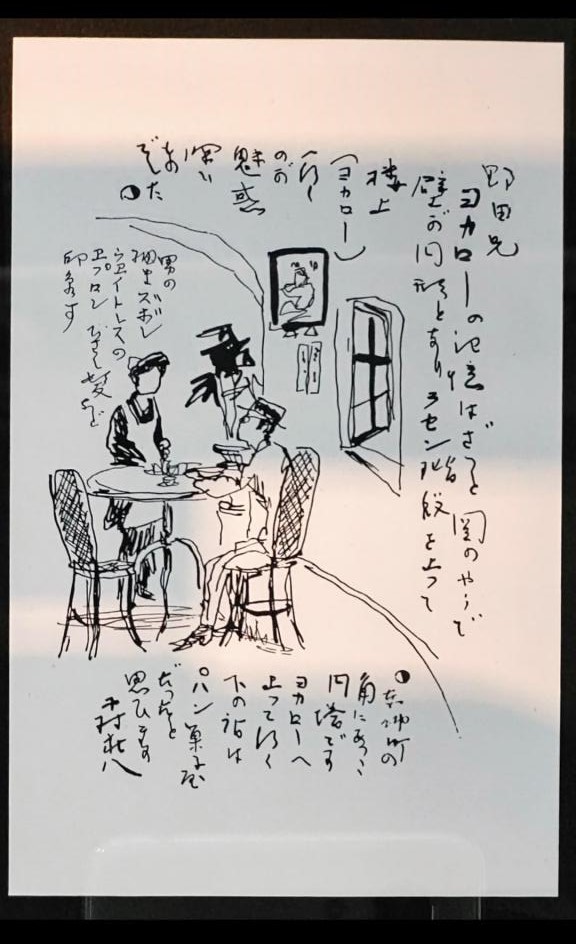 野田兄
ヨカローの記憶はざっと図のやうで
壁が円形となりラセン階段を上って
楼上
(ヨカロー)
へ行く
のが
魅惑
深い
もの
でした
男の
細いズボン
ウエイトレスの
エプロン ひさし髪など
印象です
角にあった
円塔です
ヨカローへ
上って行く
下の店は
パン菓子屋
だったと
思ひます
木村荘八